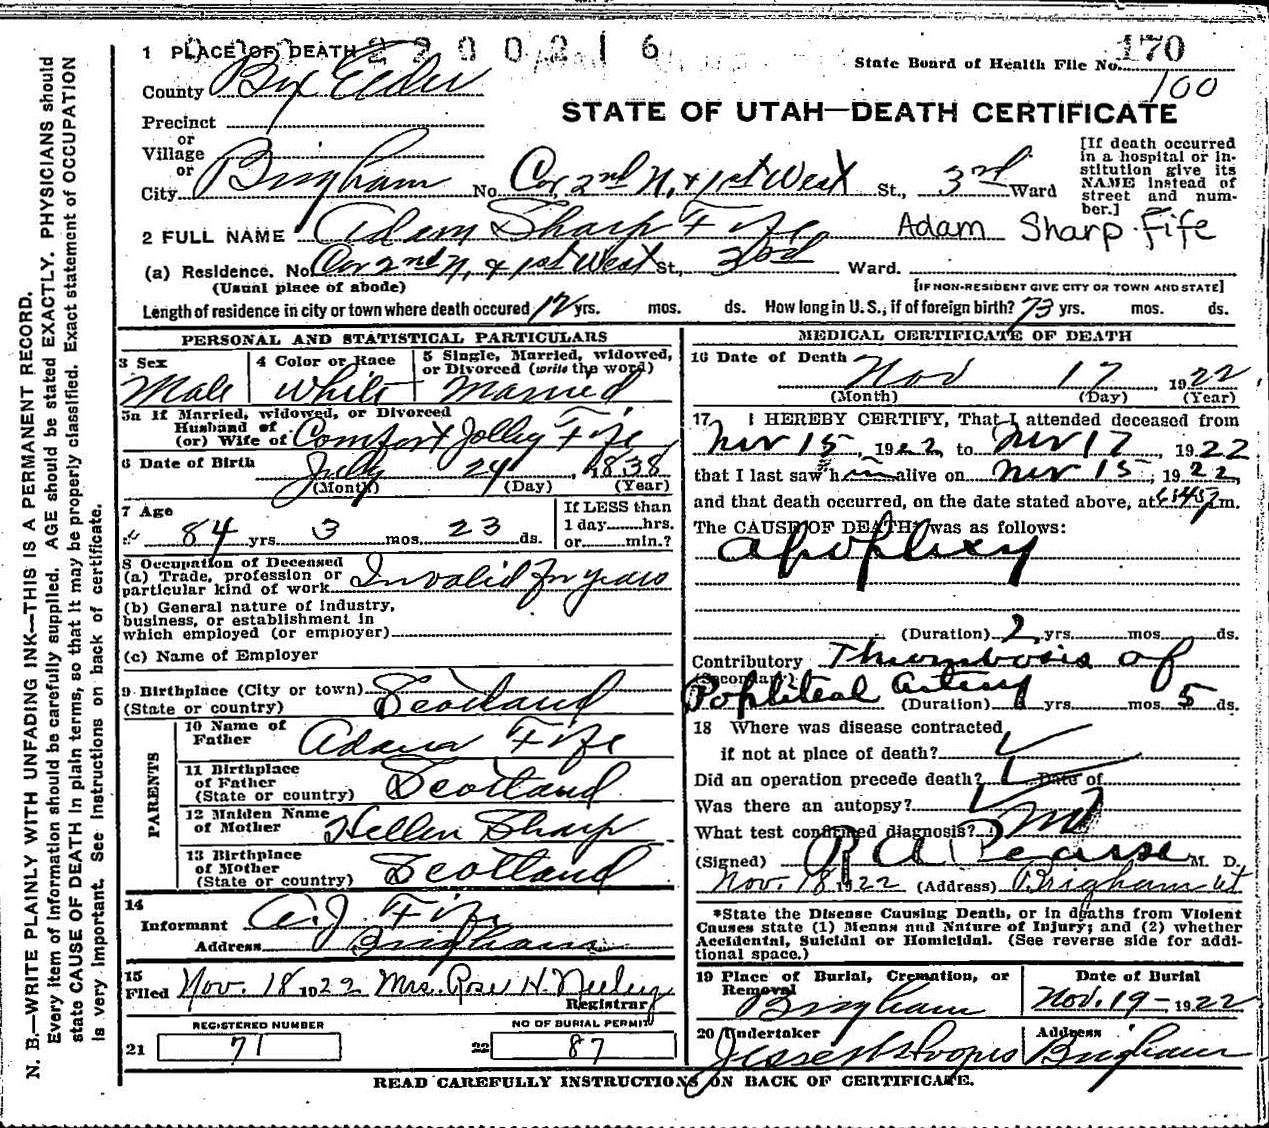 1 PLACE OF DEATH 2200216
State Board of Health File No. 170
100
County Box Elder
STATE OF UTAH—DEATH CERTIFICATE
Precinct
or
Village
or
City Brigham No. Cor 2nd N. & 1st West St., 3rd Ward
[If death occurred in a hospital or in-
stitution give its
NAME instead of
street and num-
ber.]
2 FULL NAME Adam Sharp Fife Adam Sharp Fife
(a) Residence. No. Cor 2nd N. & 1st West St., 3rd Ward.
(Usual place of abode) [IF NON-RESIDENT GIVE CITY OR TOWN AND STATE]
Length of residence in city or town where death occured 17 yrs. mos. ds. How long in U. S., if of foreign birth? 73 yrs. mos. ds.
PERSONAL AND STATISTICAL PARTICULARS
3 Sex Male
4 Color or Race White
5 Single, Married, widowed,
or Divorced (write the word)
Married
5a If Married, widowed, or Divorced
Husband of
(or) Wife of Comfort Jolley Fife
6 Date of Birth July 24, 1838
(Month) (Day) (Year)
7 Age
84 yrs. 3 mos. 23 ds.
If LESS than
1 day......hrs.
or......min.?
8 Occupation of Deceased
(a) Trade, profession or
particular kind of work Invalid for years
(b) General nature of industry,
business, or establishment in
which employed (or employer)
(c) Name of Employer
9 Birthplace (City or town)
(State or country) Scotland
PARENTS
10 Name of
Father Adam Fife
11 Birthplace
of Father
(State or country) Scotland
12 Maiden Name
of Mother Hellen Sharp
13 Birthplace
of Mother
(State or country) Scotland
14
Informant A. J. Fife
Address Brigham
15
Filed Nov. 18 1922 Mrs. Rose H. Neeley
Registrar
REGISTERED NUMBER NO OF BURIAL PERMIT
21 71 22 87
MEDICAL CERTIFICATE OF DEATH
16 Date of Death Nov 17, 1922
(Month) (Day) (Year)
17 I HEREBY CERTIFY, That I attended deceased from
Nov 15, 1922 to Nov 17, 1922
that I last saw him alive on Nov 15, 1922,
and that death occurred, on the date stated above, at m.
The CAUSE OF DEATH was as follows:
Apoplexy
(Duration) 2 yrs. mos. ds.
Contributory Thrombosis of
(Secondary)
Popliteal Artery (Duration) yrs. mos. 5 ds.
18 Where was disease contracted
if not at place of death?
Did an operation precede death? Date of
Was there an autopsy? No
What test confirmed diagnosis?
(Signed) R A Pearse M. D.
Nov. 18 1922 (Address) Brigham Ut
*State the Disease Causing Death, or in deaths from Violent
Causes state (1) Menas and Nature of Injury; and (2) whether
Accidental, Suicidal or Homicidal. (See reverse side for addi-
tional space.)
19 Place of Burial, Cremation, or
Removal
Brigham
Date of Burial
Nov. 19- 1922
20 Undertaker Address
Brigham
READ CAREFULLY INSTRUCTIONS ON BACK OF CERTIFICATE.
N. B.—WRITE PLAINLY WITH UNFADING INK—THIS IS A PERMANENT RECORD.
Every item of information should be carefully supplied. AGE should be stated EXACTLY. PHYSICIANS should
state CAUSE OF DEATH in plain terms, so that it may be properly classified. Exact statement of OCCUPATION
is very important. See instructions on back of certificate.